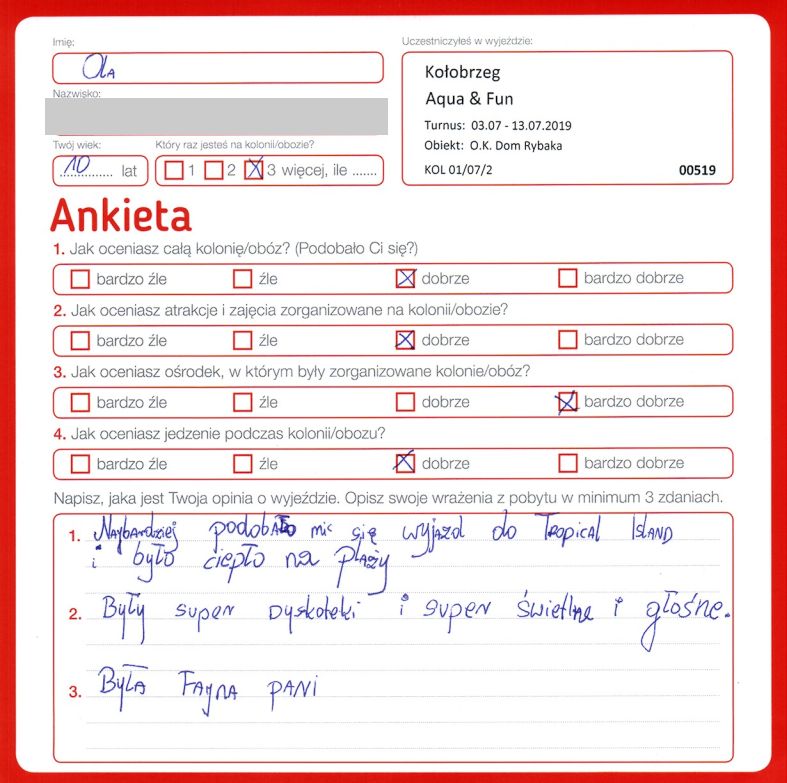 Imię:
Ola
Nazwisko:
Twój wiek:
10 lat
Który raz jesteś na kolonii/obozie?
1 2 3 więcej, ile .......
Uczestniczyłeś w wyjeździe:
Kołobrzeg
Aqua & Fun
Turnus: 03.07 - 13.07.2019
Obiekt: O.K. Dom Rybaka
KOL 01/07/2 00519
Ankieta
1. Jak oceniasz całą kolonię/obóz? (Podobało Ci się?)
bardzo źle źle dobrze bardzo dobrze
2. Jak oceniasz atrakcje i zajęcia zorganizowane na kolonii/obozie?
bardzo źle źle dobrze bardzo dobrze
3. Jak oceniasz ośrodek, w którym były zorganizowane kolonie/obóz?
bardzo źle źle dobrze bardzo dobrze
4. Jak oceniasz jedzenie podczas kolonii/obozu?
bardzo źle źle dobrze bardzo dobrze
Napisz, jaka jest Twoja opinia o wyjeździe. Opisz swoje wrażenia z pobytu w minimum 3 zdaniach.
1. Naybardziej podobało mic się wyjazd do Tropical Island
i było ciepło na plaży
2. Były super dyskoteki i super świetlne i głośne.
3. Była Fayna pani